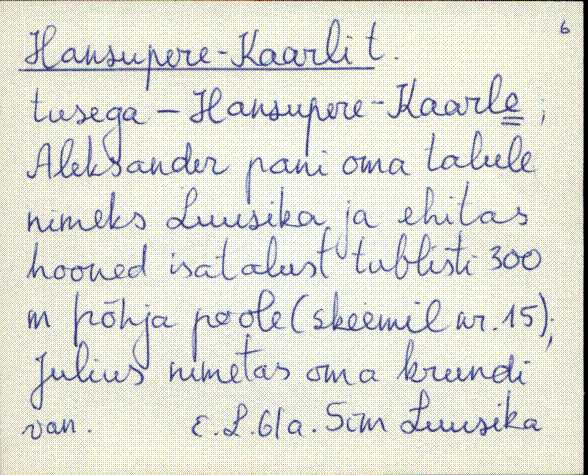 6
Hansupere-Kaarli t.
tusega - Hansupere-Kaarle;
Aleksander pani oma talule
nimeks Luusika ja ehitas
hooned isatalust tublisti 300
m põhja poole (skeemil nr. 15);
Julius nimetas oma krundi
van. E. L. 61a. Siim Luusika